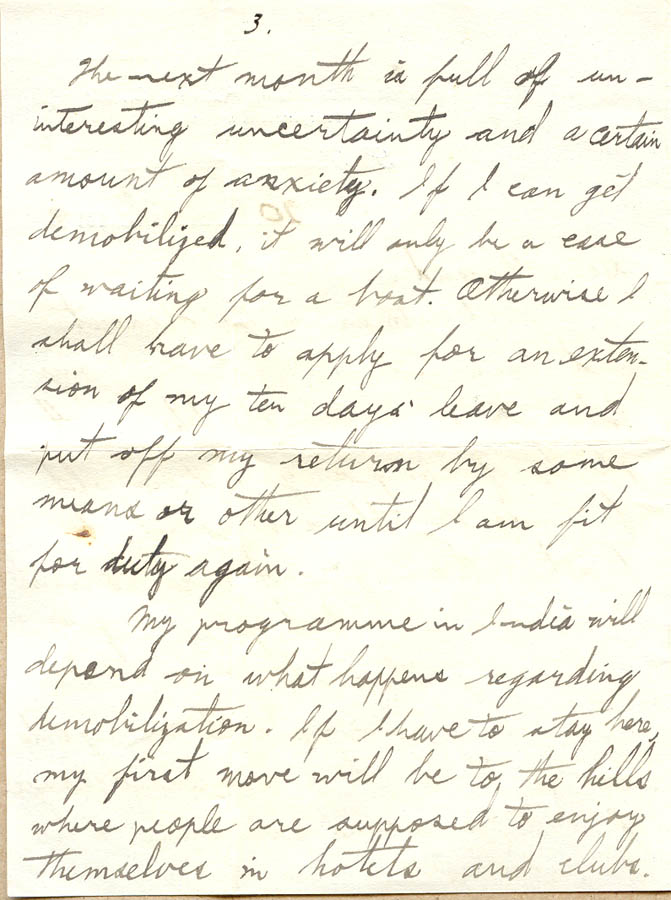 3.
The next month is full of un-
interesting uncertainty and a certain
amount of anxiety. If I can get
demobilized, it will only be a case
of waiting for a boat. Otherwise I
shall have to apply for an exten-
sion of my ten days leave and
put off my return by some
means or other until I am fit
for duty again.
My programme in India will
depend on what happens regarding
demobilization. If I have to stay here,
my first move will be to the hills
where people are supposed to enjoy
themselves in hotels and clubs.